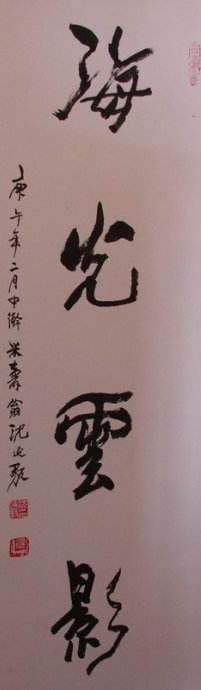 海光雲影
庚午年二月中澣米壽翁沈延毅